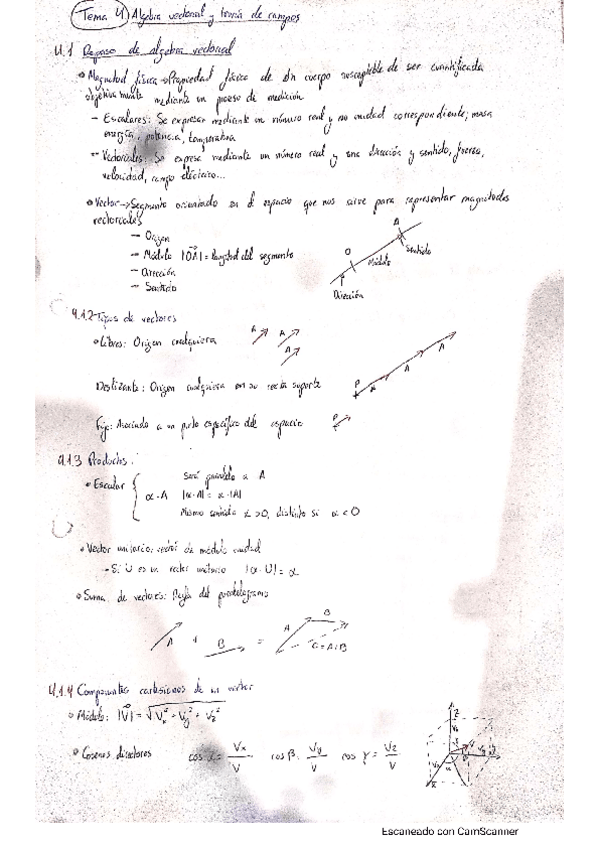 Tema 4) Algebra vectorial y teoría de campos
4.1 Repaso de algebra vectorial
Magnitud física → Propiedad física de un cuerpo susceptible de ser cuantificada
objetivamente mediante un proceso de medición
- Escalares: Se expresan mediante un número real y su unidad correspondiente; masa
energía, potencia, temperatura
- Vectoriales: Se expresa mediante un número real y una dirección y sentido, fuerza,
velocidad, campo eléctrico...
Vector → Segmento orientado en el espacio que nos sirve para representar magnitudes
vectoriales
- Origen
- Módulo |OA| = longitud del segmento
- Dirección
- Sentido
A
O
Sentido
Módulo
Dirección
4.1.2 Tipos de vectores
Libres: Origen cualquiera
A A
A
Deslizante: Origen cualquiera en su recta soporte
P A A A
Fijo: Asociado a un punto específico del espacio
P
4.1.3 Productos:
Escalar
Será paralelo a A
α·A |α·A| = α·|A|
Mismo sentido α>0, distinto si α<0
Vector unitario: vector de módulo unidad
- Si U es un vector unitario |α·U| = α
Suma de vectores: Regla del paralelogramo
A + B = A B C=A+B
4.1.4 Componentes cartesianas de un vector
Módulo: |V| = √Vx² + Vy² + Vz²
Cosenos directores cos α = Vx/V cos β = Vy/V cos γ = Vz/V
Escaneado con CamScanner